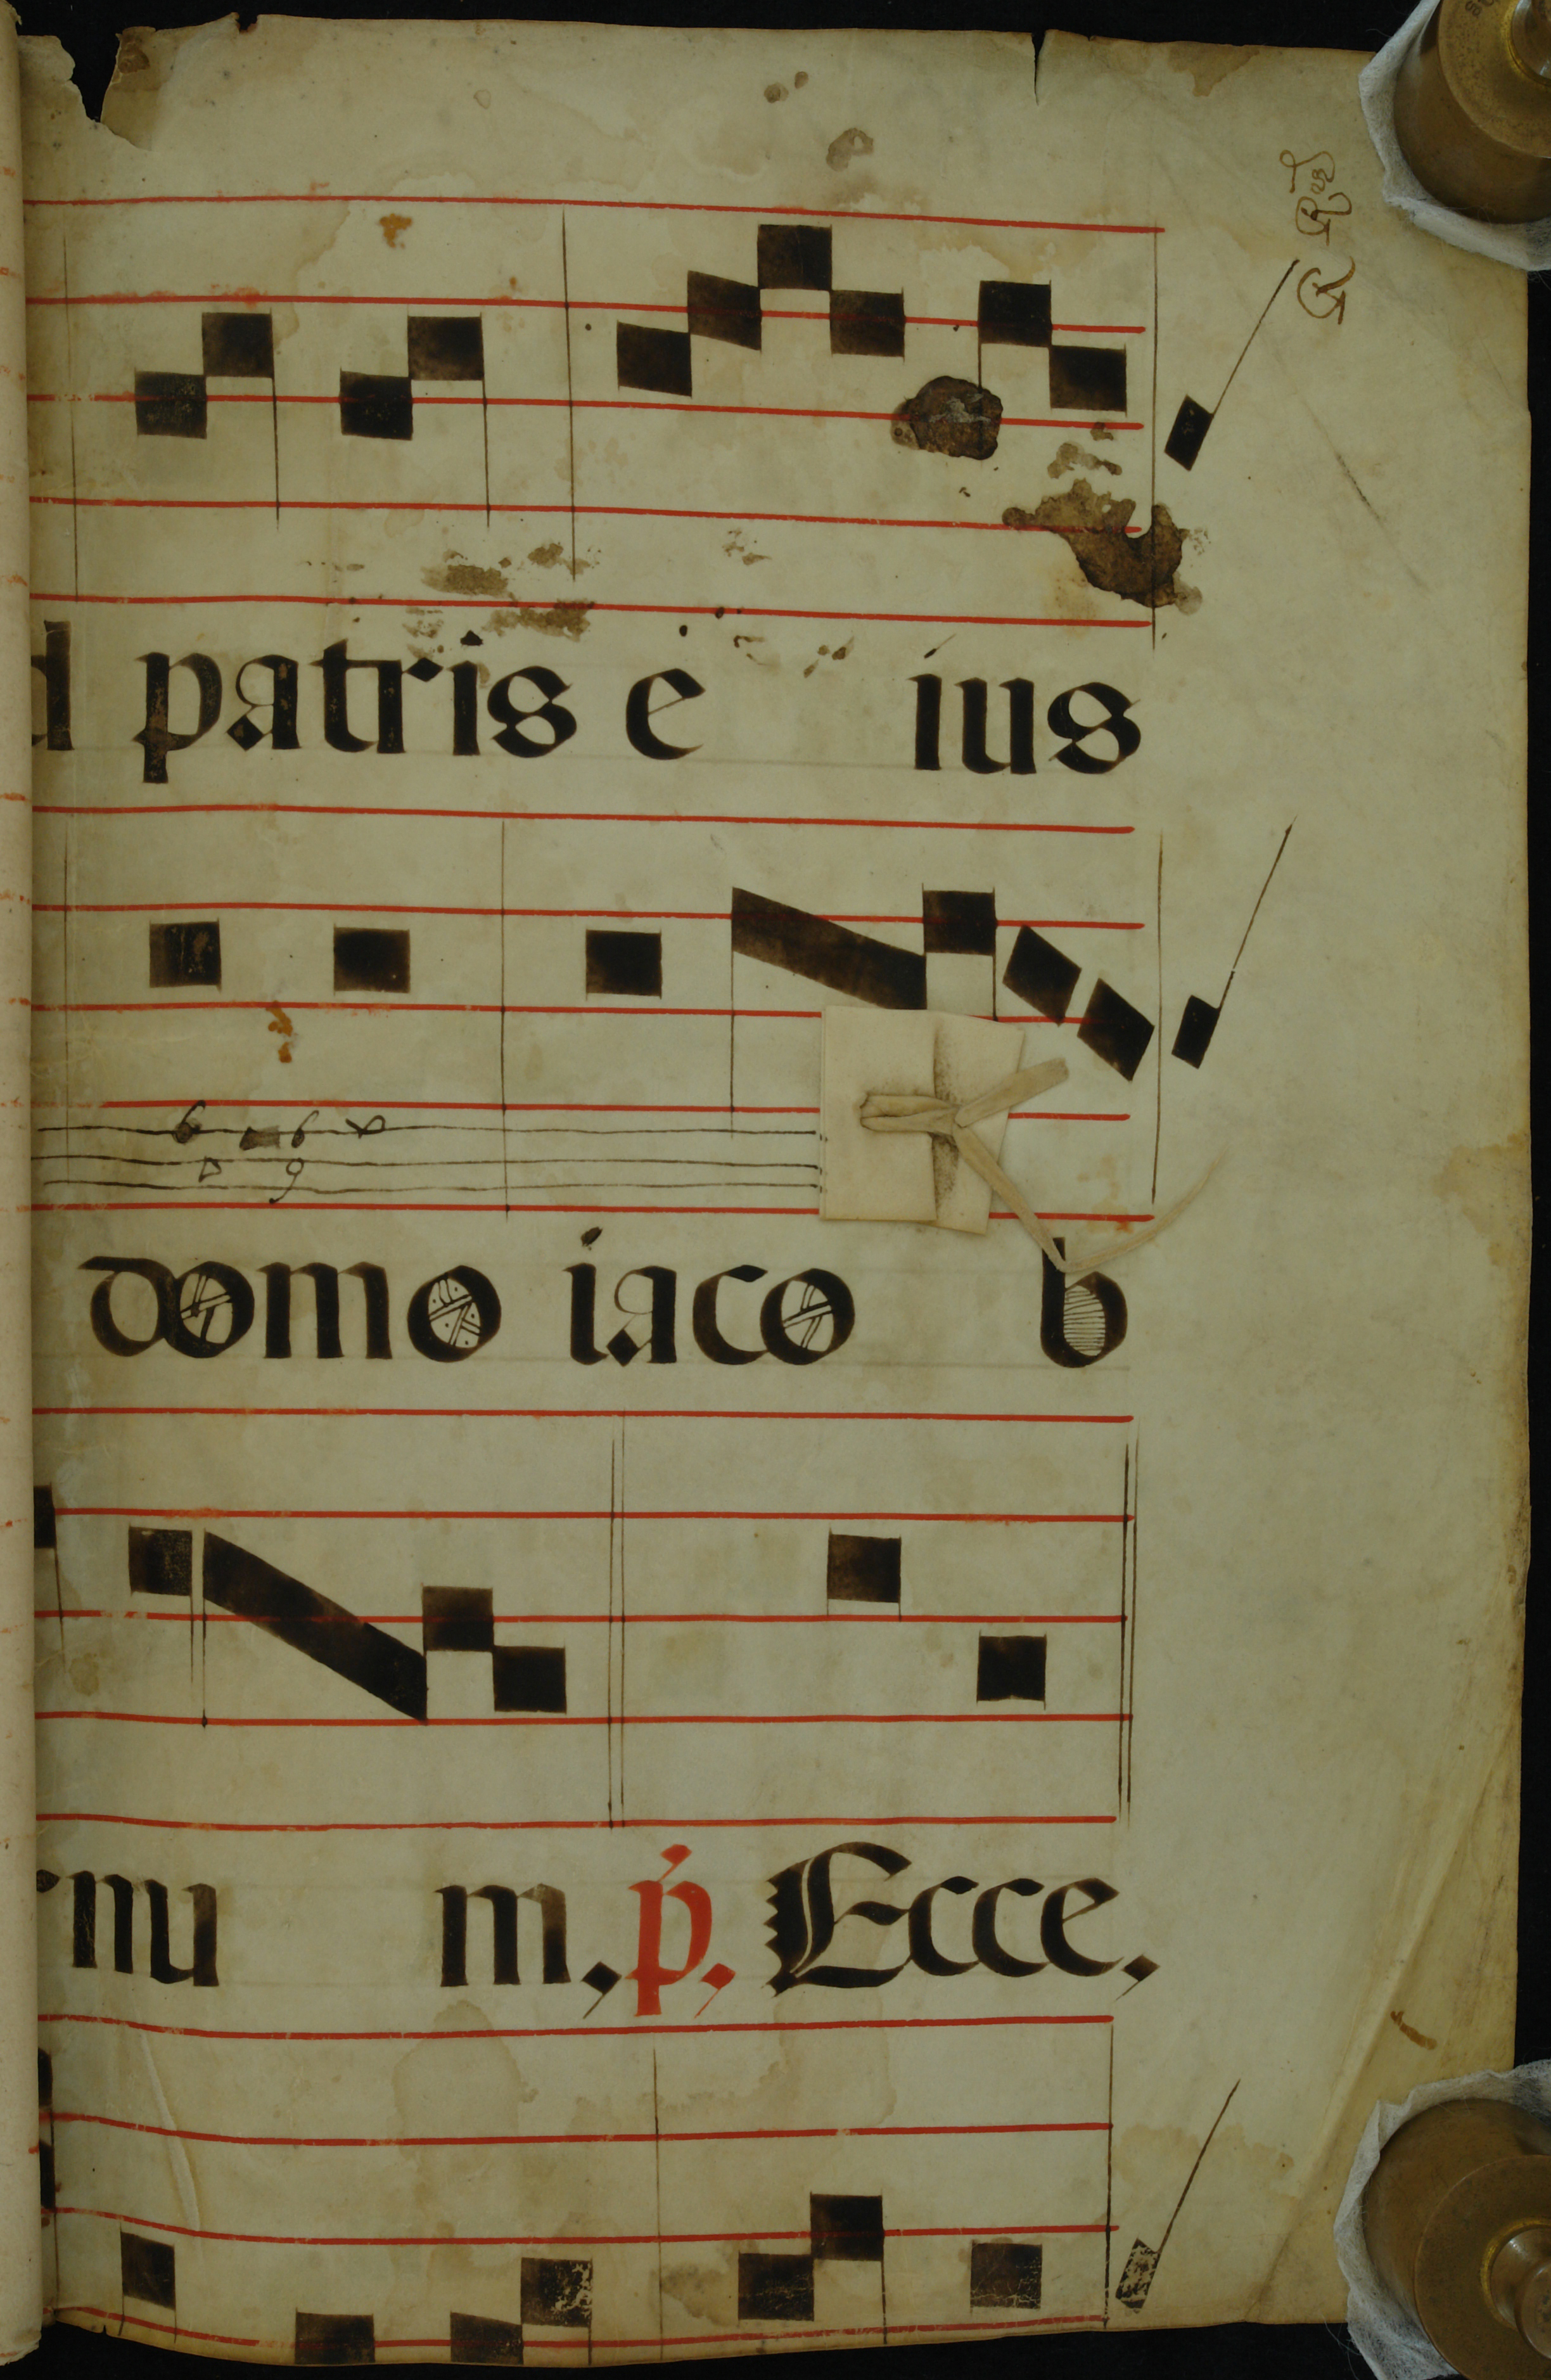 d patris e ius
domo iaco b
rnu m, p. Ecce,